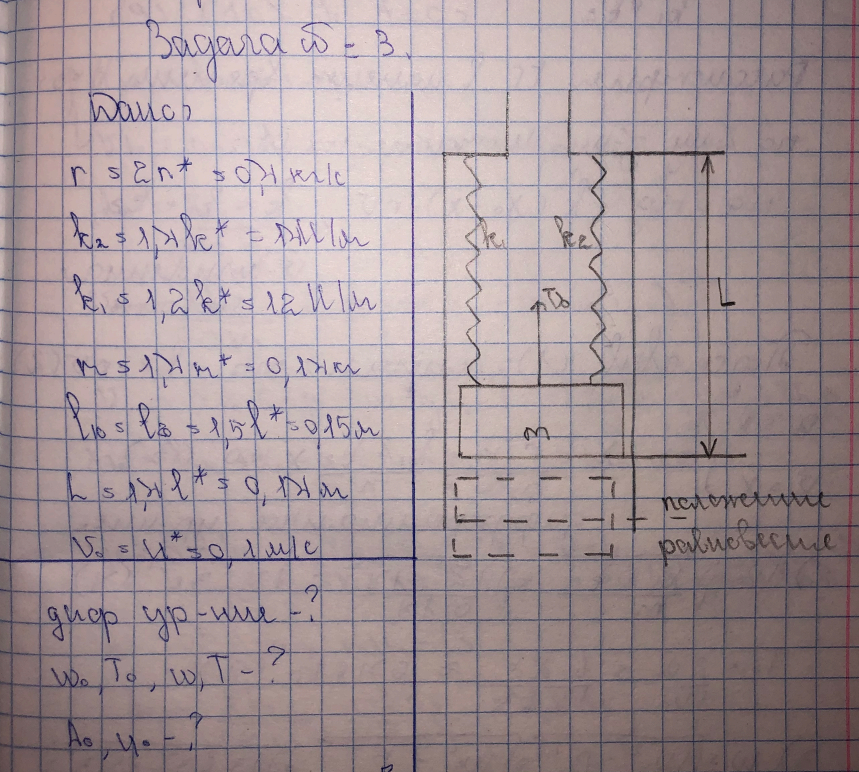 Задача № 3.
Дано:
r = 2r* = 0,2 кг/с
k₂ = 1,7k* = 17 Н/м
k₁ = 1,2k* = 12 Н/м
m = 1,7m* = 0,17 кг
l₁₀ = l₂₀ = 1,5l* = 0,15 м
L = 1,7l* = 0,17 м
v₀ = u* = 0,1 м/с
диф ур-ние -?
ω₀, T₀, ω, T - ?
A₀, φ₀ - ?
k₁
k₂
v₀
L
m
положение
равновесия